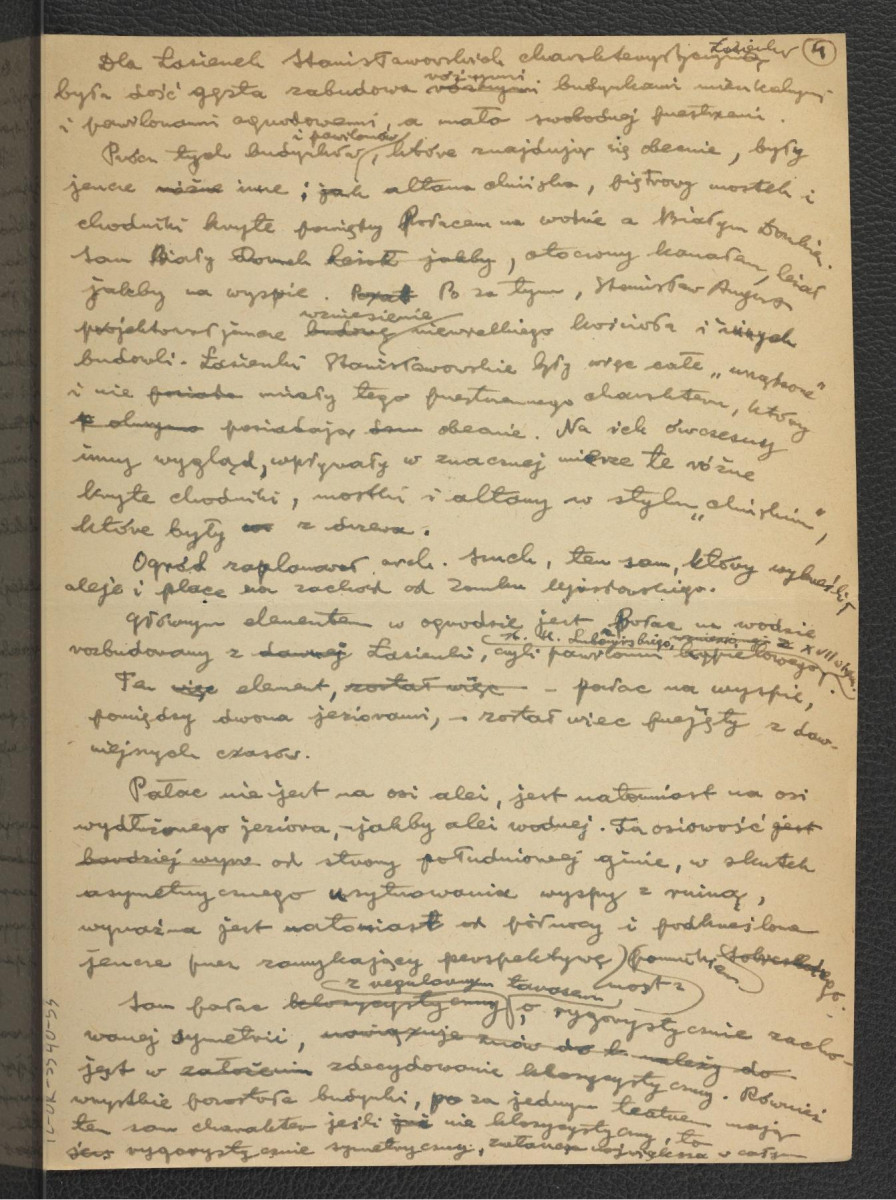 Łazienki 4
Dla Łazienek Stanisławowskich charakterystyczną
była dość gęsta zabudowa różnymi różnymi budynkami mieszkalnymi
i pawilonami ogrodowemi, a mało swobodnej przestrzeni.
Prócz tych budynków i pawilonów, które znajdują się obecnie, były
jeszcze różne inne ; jak altana chińska, piętrowy mostek i
chodniki kryte pomiędzy Pałacem na wodzie a Białym Domkiem.
Sam Biały Domek leżał jakby, otoczony kanałem, leżał
jakby na wyspie. Po za tym, Stanisław August
projektował jeszcze budowę wzniesienie niewielkiego kościoła i innych
budowli. Łazienki Stanisławowskie były więc całe „urządzone"
i nie posiada miały tego przestrzennego charakteru, który
posiadają obecnie. Na ich ówczesny
inny wygląd, wpływały w znacznej mierze te różne
kryte chodniki, mostki i altany w stylu „chińskim",
które były z drzewa.
Ogród zaplanował arch. Szuch, ten sam, który wykreślił
aleje i place na zachód od Zamku Ujazdowskiego.
Głównym elementem w ogrodzie jest Pałac na wodzie
rozbudowany z dawnej Łazienki, czyli pawilonu kąpielowego, St. H. Lubomirskiego, z XVII
Ten więc element, został więc – pałac na wyspie,
pomiędzy dwoma jeziorami, – został więc przejęty z daw-
niejszych czasów.
Pałac nie jest na osi alei, jest natomiast na osi
wydłużonego jeziora, – jakby alei wodnej. Ta osiowość jest
bardziej wyra od strony południowej ginie, w skutek
asymetrycznego usytuowania wyspy z ruiną,
wyraźna jest natomiast od północy i podkreślona
jeszcze przez zamykający perspektywę most z pomnikiem Sobieskiego.
Sam pałac klasycystyczny z regularnym tarasem, o rygorystycznie zacho-
wanej symetrii, nawiązuje znów do k należy do
jest w założeniu zdecydowanie klasycystyczny. Również
wszystkie pozostałe budynki, po za jednym teatrem mają
ten sam charakter jeśli już nie klasycystyczny, to
ściśle rygorystycznie symetryczny, największa w całym
12-DK-5940-59